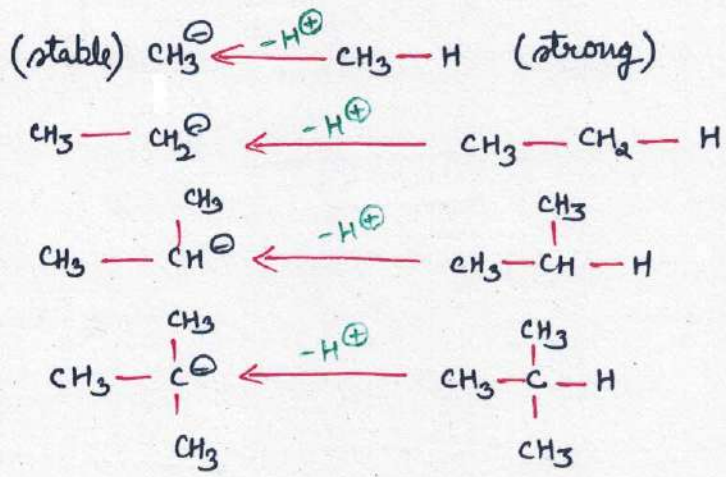 (stable) CH₃⊖ ← -H⊕ CH₃ — H (strong)
CH₃ — CH₂⊖ ← -H⊕ CH₃ — CH₂ — H
CH₃ CH₃
CH₃ — CH⊖ ← -H⊕ CH₃ — CH — H
CH₃ CH₃
CH₃ — C⊖ ← -H⊕ CH₃ — C — H
CH₃ CH₃